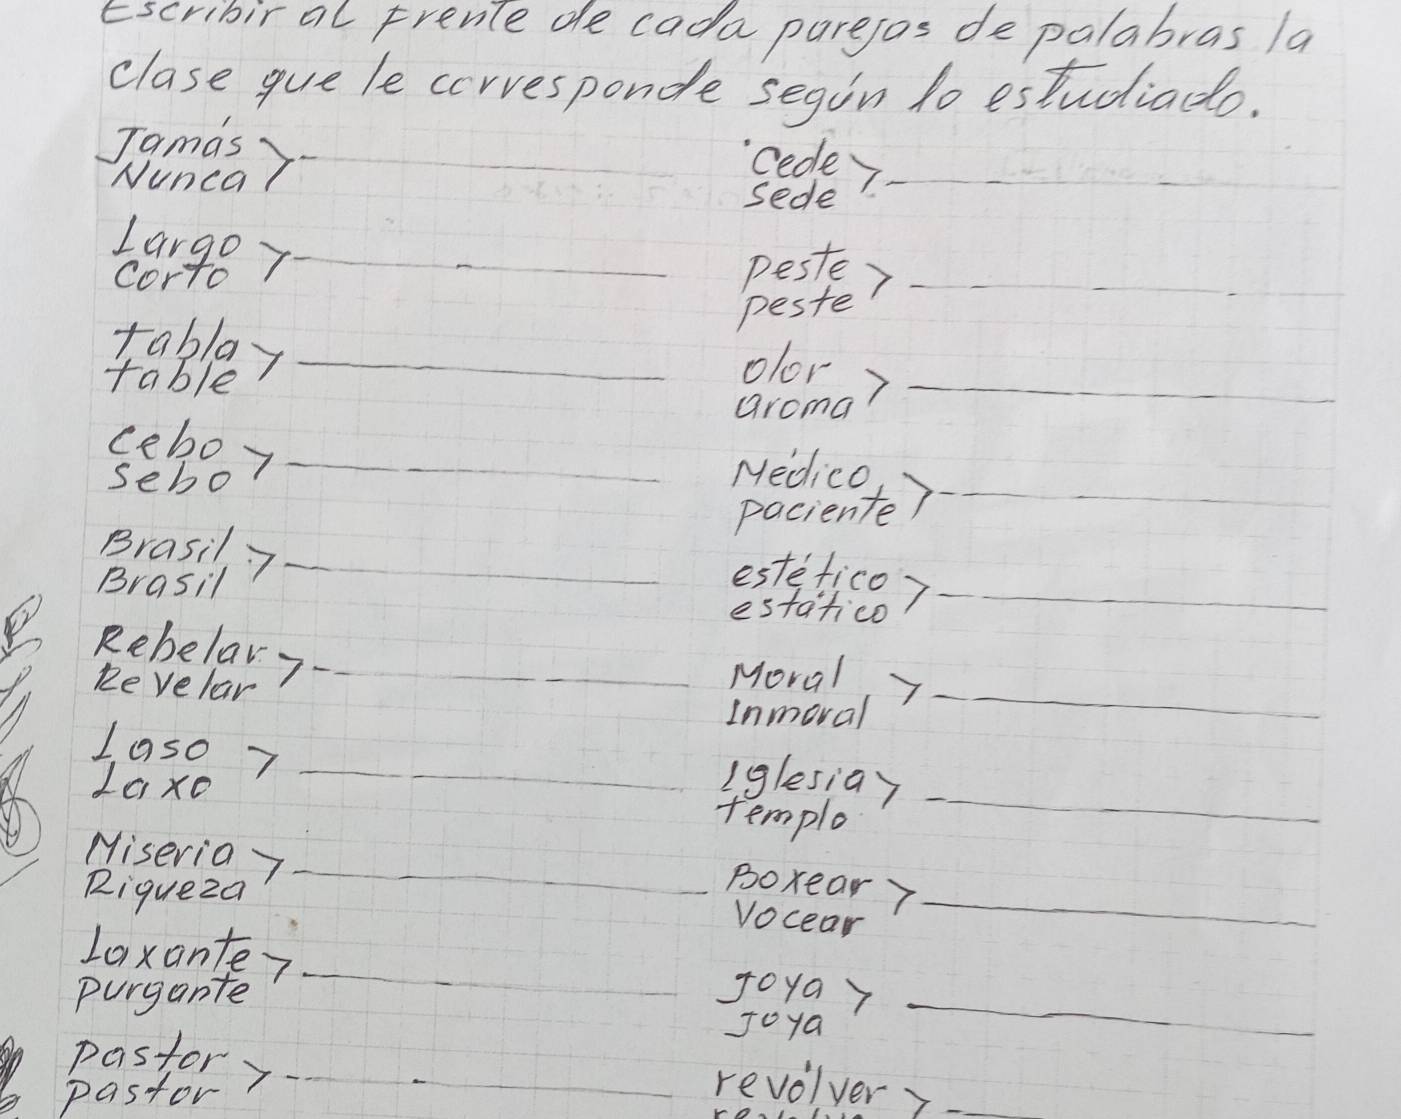 Escribir al frente de cada parejas de palabras la
clase que le corresponde según lo estudiado.
Jamás
Nunca
Largo
Corto
tabla
table
cebo
sebo
Brasil
Brasil
Rebelar
Revelar
Laso
Laxo
Miseria
Riqueza
Laxante
purgante
pastor
pastor
Cede
sede
peste
peste
olor
aroma
Médico
paciente
estético
estático
Moral
Inmoral
Iglesia
templo
Boxear
Vocear
Joya
Joya
revólver